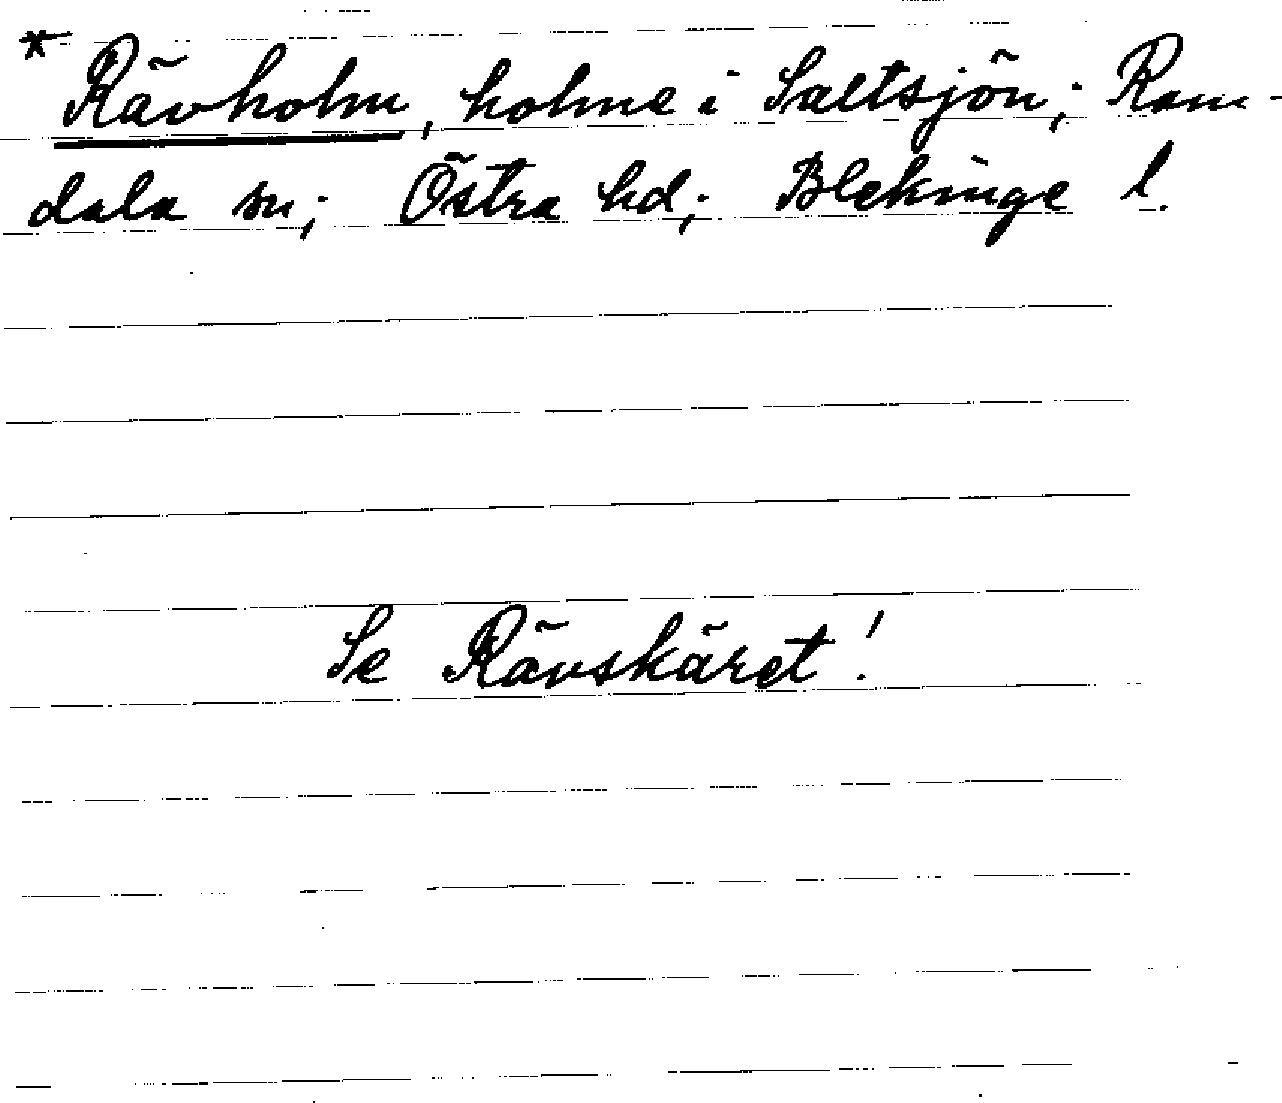 * Rävholm, holme i Saltsjön; Ram-
dala sn; Östra hd; Blekinge l.
Se Rävskäret!